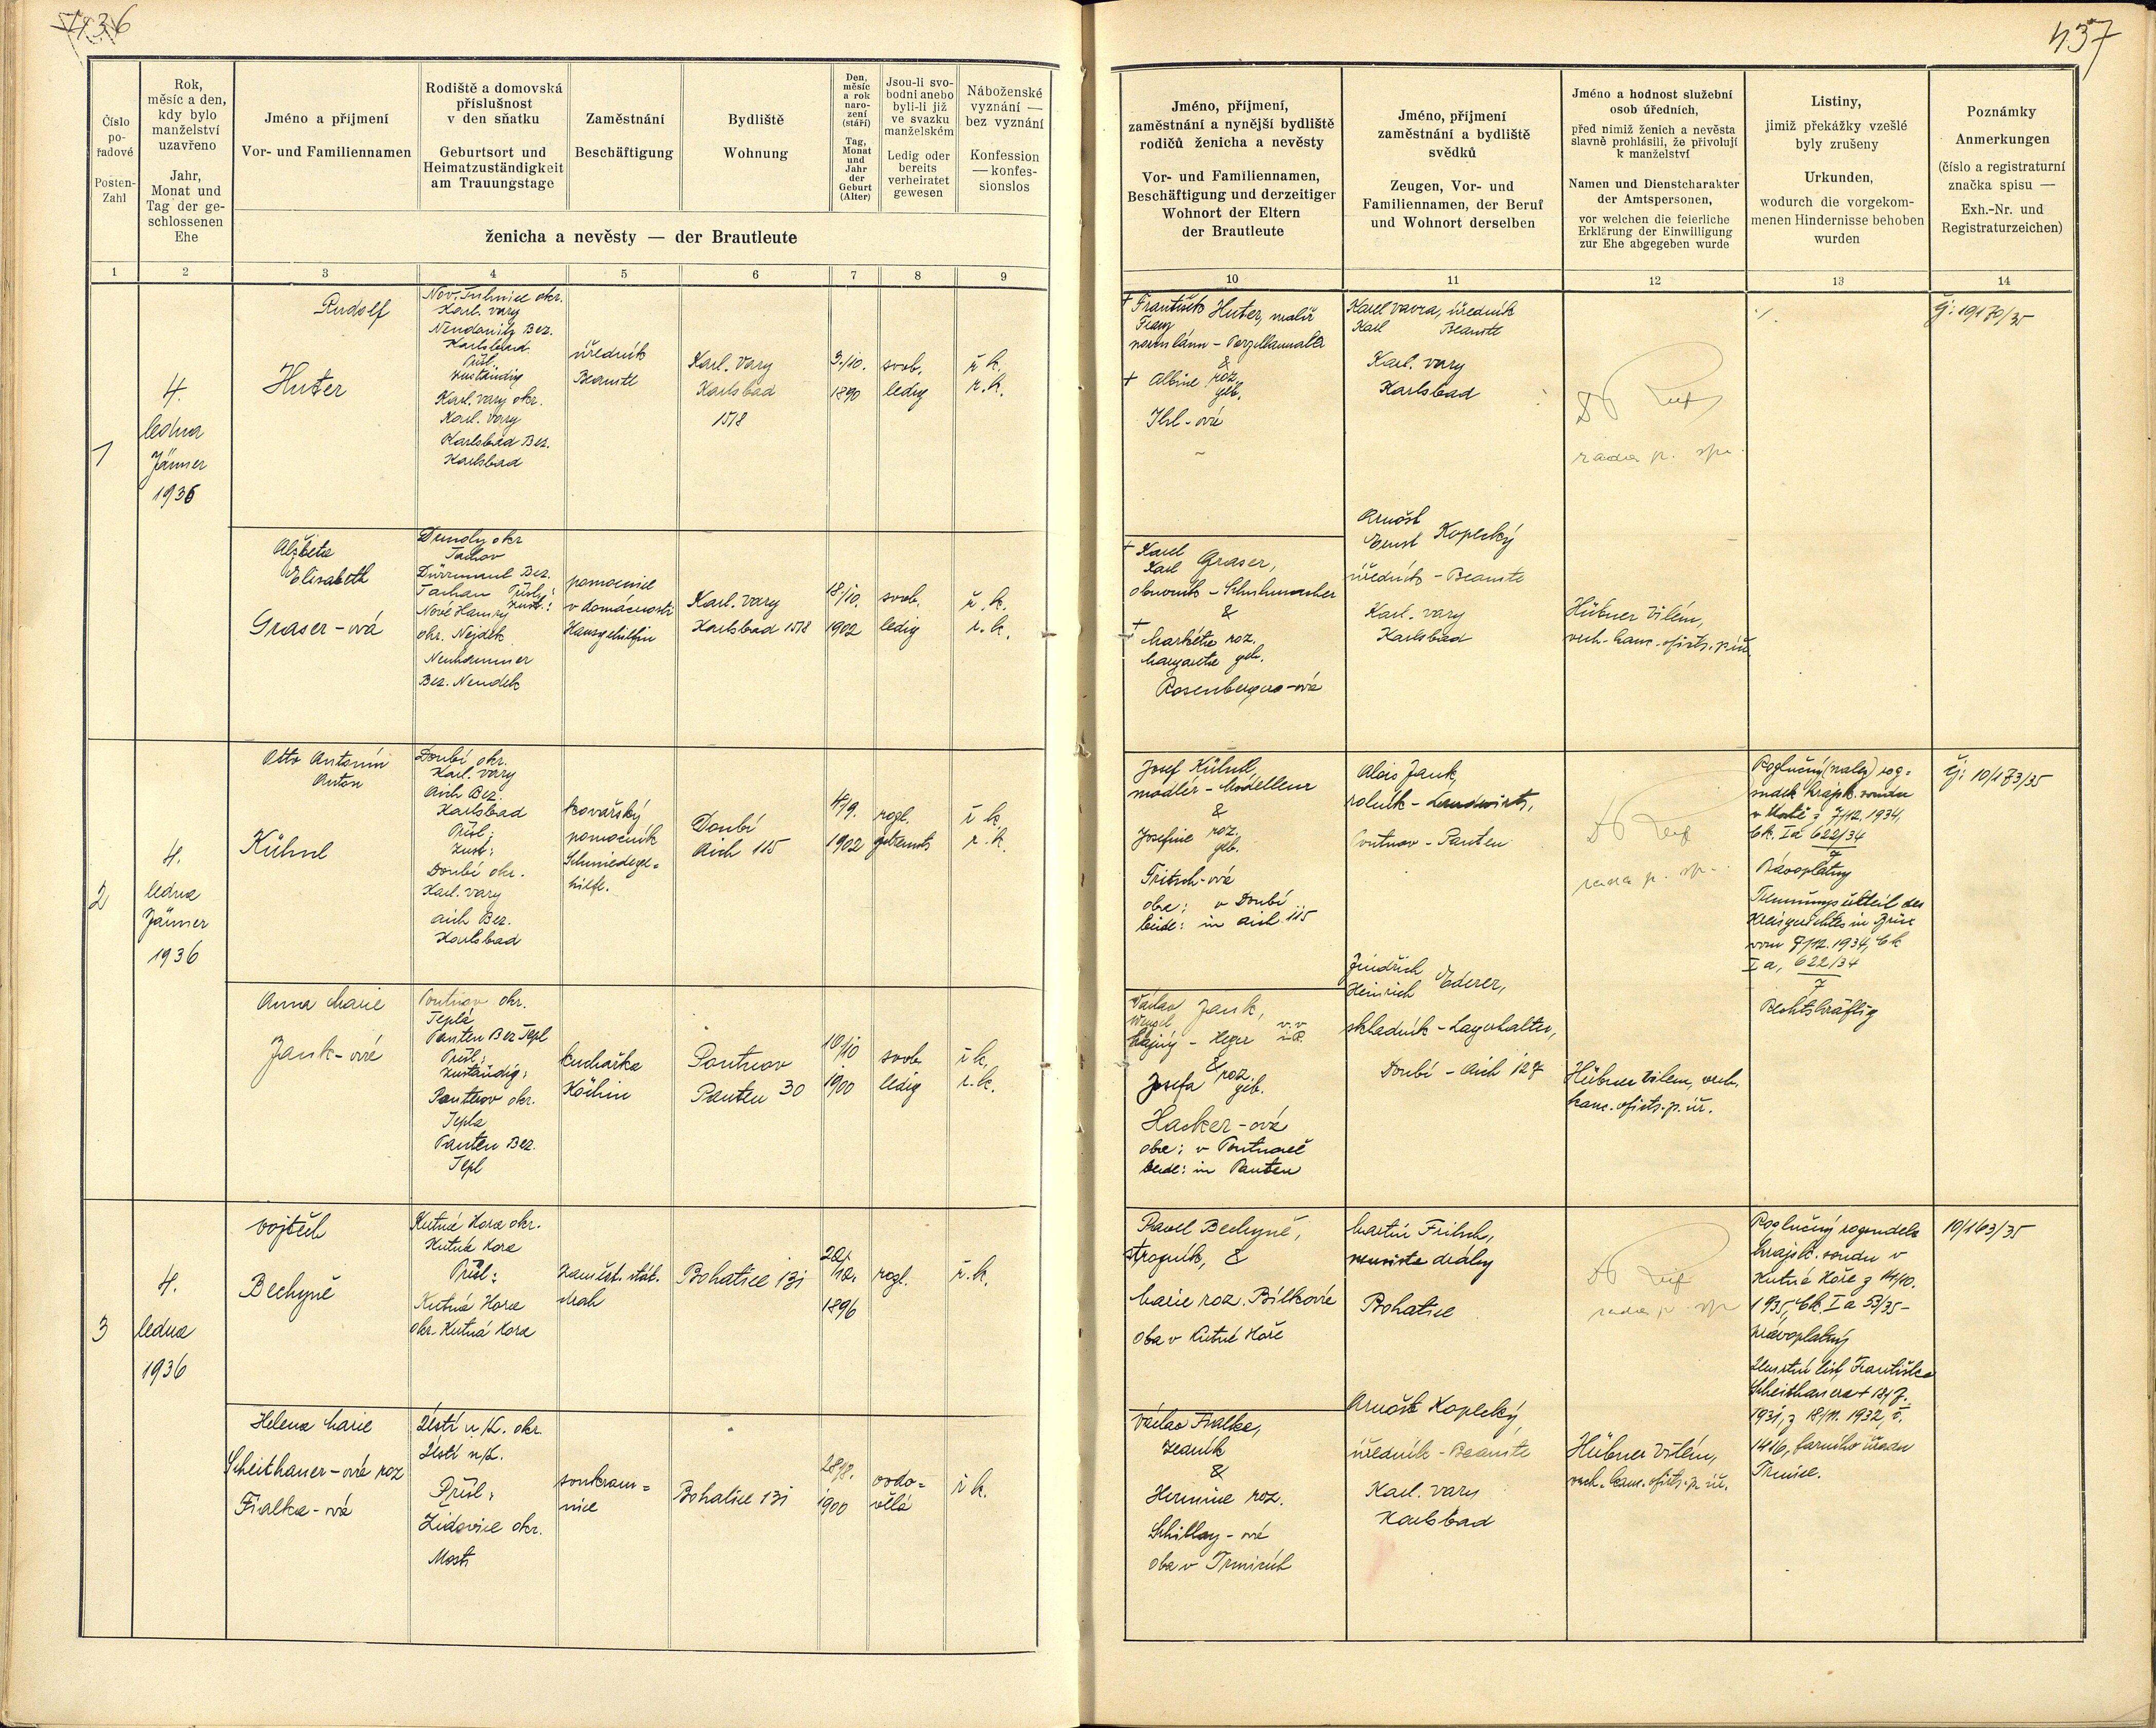 436
437
Číslo
po-
řadové
Posten-
Zahl
Rok,
měsíc a den,
kdy bylo
manželství
uzavřeno
Jahr,
Monat und
Tag der ge-
schlossenen
Ehe
Jméno a příjmení
Vor- und Familiennamen
Rodiště a domovská
příslušnost
v den sňatku
Geburtsort und
Heimatzuständigkeit
am Trauungstage
Zaměstnání
Beschäftigung
Bydliště
Wohnung
Den,
měsíc
a rok
naro-
zení
(stáří)
Tag,
Monat
und
Jahr
der
Geburt
(Alter)
Jsou-li svo-
bodni anebo
byli-li již
ve svazku
manželském
Ledig oder
bereits
verheiratet
gewesen
Náboženské
vyznání —
bez vyznání
Konfession
— konfes-
sionslos
ženicha a nevěsty — der Brautleute
Jméno, příjmení,
zaměstnání a nynější bydliště
rodičů ženicha a nevěsty
Vor- und Familiennamen,
Beschäftigung und derzeitiger
Wohnort der Eltern
der Brautleute
Jméno, příjmení
zaměstnání a bydliště
svědků
Zeugen, Vor- und
Familiennamen, der Beruf
und Wohnort derselben
Jméno a hodnost služební
osob úředních,
před nimiž ženich a nevěsta
slavně prohlásili, že přivolují
k manželství
Namen und Dienstcharakter
der Amtspersonen,
vor welchen die feierliche
Erklärung der Einwilligung
zur Ehe abgegeben wurde
Listiny,
jimiž překážky vzešlé
byly zrušeny
Urkunden,
wodurch die vorgekom-
menen Hindernisse behoben
wurden
Poznámky
Anmerkungen
(číslo a registraturní
značka spisu —
Exh.-Nr. und
Registraturzeichen)
1 2 3 4 5 6 7 8 9
10 11 12 13 14
1
4.
ledna
Jänner
1936
Rudolf
Huter
Karl. vary
Karlsbad
Přísl.
zuständig
Karl. vary okr.
Karl. vary
Karlsbad Bez.
Karlsbad
úředník
Beamte
Karl. Vary
Karlsbad
1518
3./10.
1890
svob.
ledig
ř. k.
r. k.
† František Huter, malíř
Franz
&
† Albine roz.
geb.
Karel Vavra, úředník
Karl Beamte
Karl. vary
Karlsbad
rada p. spr.
./.
Čj: 19170/35
Alžběta
Elisabeth
Graser-ová
Tachov
Dürrmaul Bez.
Tachau Přísl:
Nové Hamry zust:
okr. Nejdek
Neuhammer
Bez. Neudek
pomocnice
v domácnosti
Hausgehilfin
Karl. vary
Karlsbad 1518
18./10.
1902
svob.
ledig
ř. k.
r. k.
† Karel
Karl Graser,
obuvník - Schuhmacher
&
† Markéta roz.
Margareta geb.
Rosenberger-ová
Arnošt
Ernst Koplcký
úředník - Beamte
Karl. vary
Karlsbad
Hübner Vilém,
vrch. kanc. ofici. p. úř.
2
4.
ledna
Jänner
1936
Otto Antonín
Anton
Kühnl
Doubí okr.
Karl. vary
Aich Bez.
Karlsbad
Přísl:
zust:
Doubí okr.
Karl. vary
Aich Bez.
Karlsbad
kovářský
pomocník
Schmiedege-
hilfe.
Doubí
Aich 115
4/9.
1902
rozl.
getrennt
ř. k.
r. k.
Josef Kühnl,
modlér - Modelleur
&
Josefine roz.
geb.
Fritsch-ová
oba: v Doubí
beide: in Aich 115
Alois Jank,
rolník - Landwirt,
Poutnov - Pauten
rada p. spr.
soudu
v Mostě z 7/12. 1934,
Ck. Ia 622/34
7
Právoplatný
Trennungsurteil des
Kreisgerichtes in Brüx
vom 7/12. 1934, Ck
Ia, 622/34
7
Rechtskräftig
Čj: 10/173/35
Anna Marie
Jank-ová
Poutnov okr.
Teplá
Pauten Bez Tepl
Přísl:
zuständig:
Poutnov okr.
Tepla
Pauten Bez.
Tepl
kuchařka
Köchin
Poutnov
Pauten 30
10/10
1900
svob.
ledig
ř. k.
r. k.
Václav
Wenzel Jank,
hajný - Heger v. v.
i. R.
& roz.
Josefa geb.
Hacker-ová
oba: v Poutnově
beide: in Pauten
Jindřich
Heinrich Ederer,
skladník - Lagerhalter,
Doubí - Aich 127
Hübner Vilem, vrch.
kanc. ofici. p. úř.
3
4.
ledna
1936
Vojtěch
Bechyně
Kutná Hora okr.
Kutná Hora
Přísl:
Kutná Hora
okr. Kutná Hora
zaměst. stát.
drah
Bohatice 131
1896
rozl.
ř. k.
Pavel Bechyně,
strojník, &
Marie roz. Bílková
oba v Kutné Hoře
Martin Fritsch,
dráhy
Bohatice
rada p. spr
Rozlučný rozsudek
krajsk. soudu v
Kutné Hoře z 14/10.
1935, Ck. Ia 53/35-
právoplatný
Úmrtní list Františka
Scheithauera † 18/7.
1931, z 18/11. 1932, č.
1416, farního úřadu
Trmice.
10/163/35
Helena Marie
Scheithauer-ová roz
Fialka-ová
Ústí n/L. okr.
Ústí n/L.
Přísl:
Židovice okr.
Most
soukrom-
nice
Bohatice 131
28/8.
1900
ovdo-
vělá
ř k.
Václav Fialka,
zedník
&
Hermine roz.
Schillay-ová
oba v Trmicích
Arnošt Koplcký,
úředník - Beamte
Karl. vary
Karlsbad
Hübner Vilém,
vrch. kanc. ofici. p. úř.